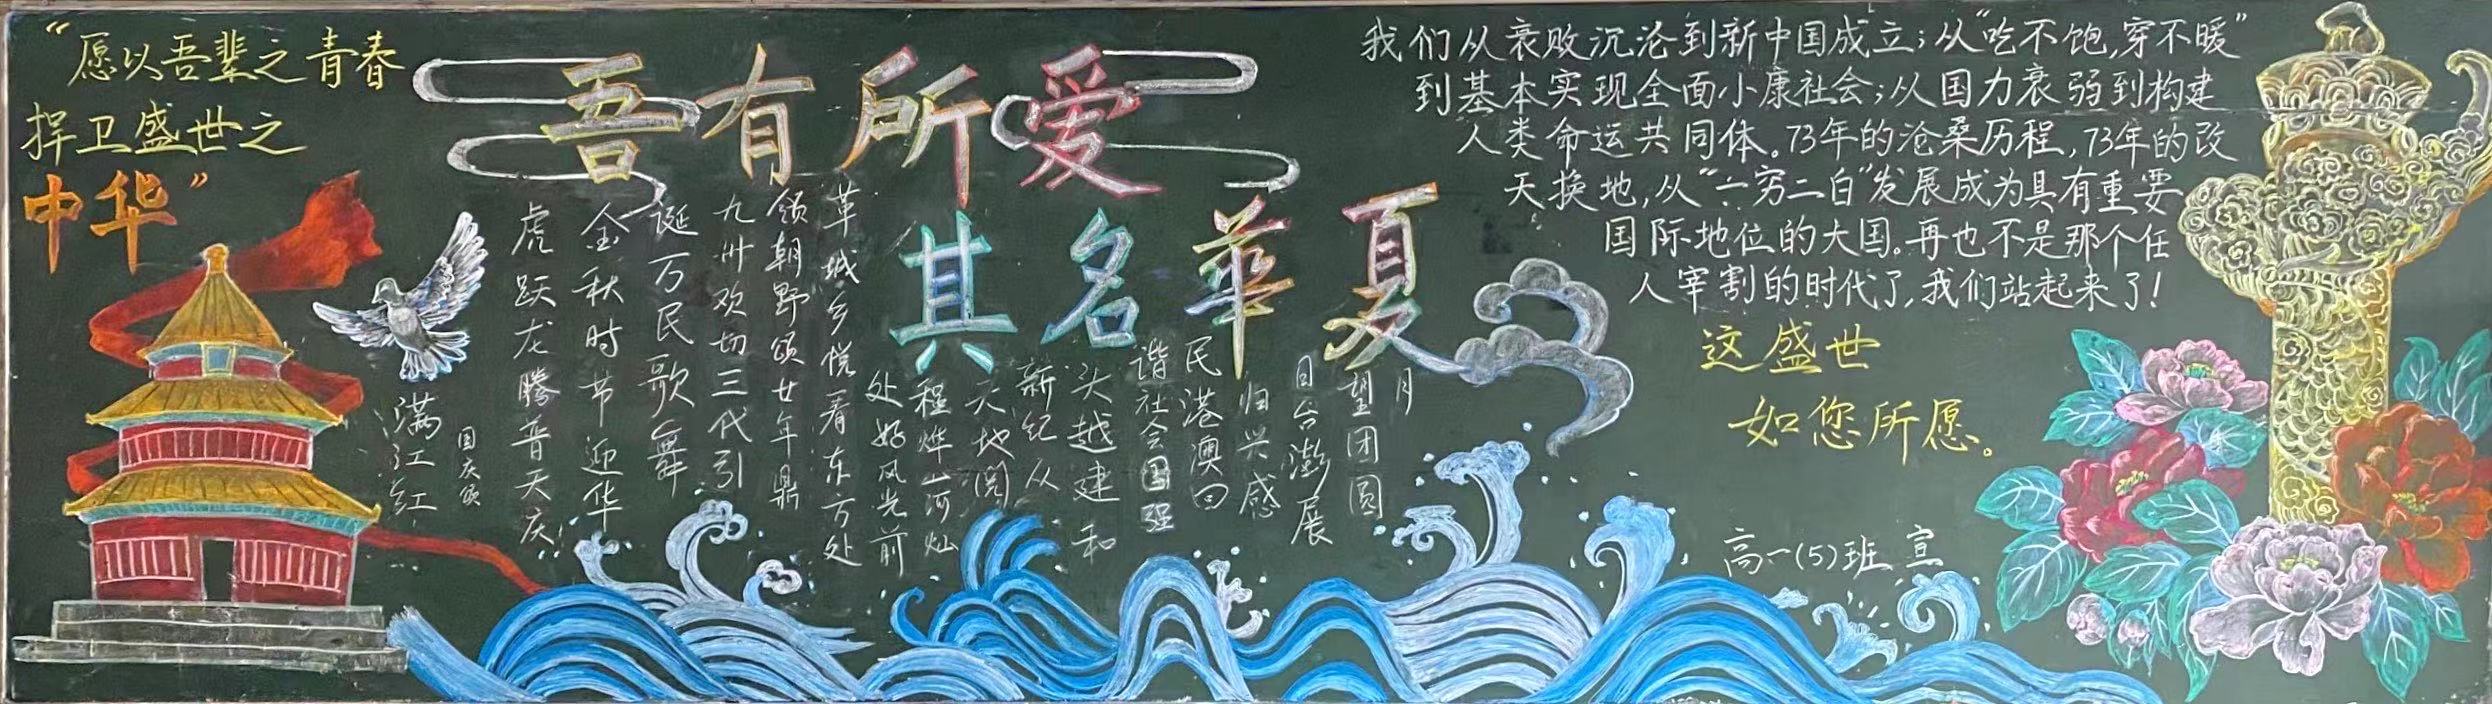 “愿以吾辈之青春
捍卫盛世之
中华”
吾有所爱
其名華夏
满江红
国庆颂
虎跃龙腾普天庆
金秋时节迎华
诞万民歌舞
九州欢切三代引
领朝野颂廿年鼎
革城乡悦看东方处
处好风光前
程烨山河灿
天地阅
新纪从
头越建和
谐社会国强
民港澳回
归兴感
日台澎展
望团圆
月
我们从衰败沉沦到新中国成立；从“吃不饱，穿不暖”
到基本实现全面小康社会；从国力衰弱到构建
人类命运共同体。73年的沧桑历程，73年的改
天换地，从“一穷二白”发展成为具有重要
国际地位的大国。再也不是那个任
人宰割的时代了，我们站起来了！
这盛世
如您所愿。
高一(5)班 宣